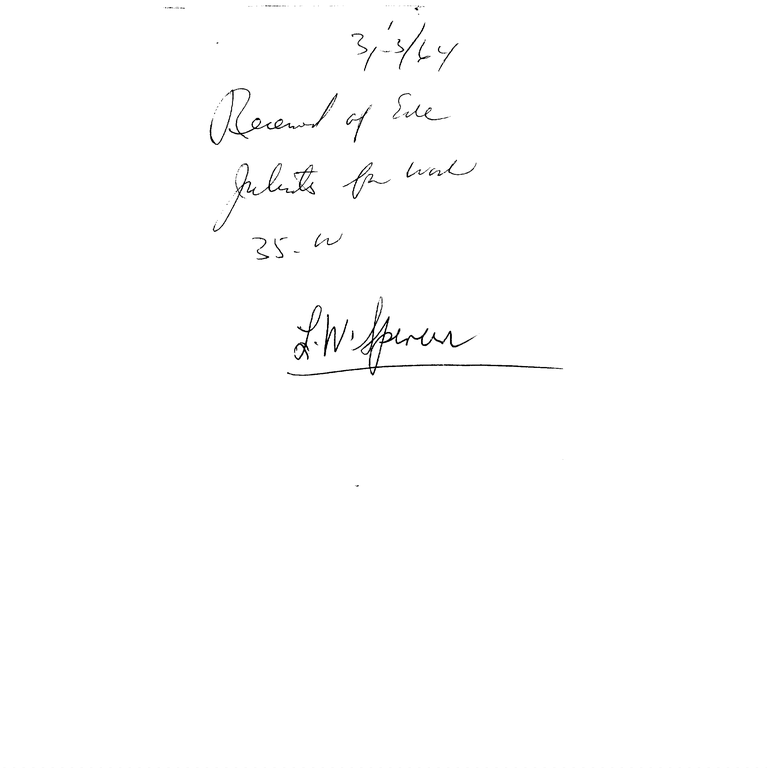 3/3/64
Received of
for work
35-00
L.W. Spencer